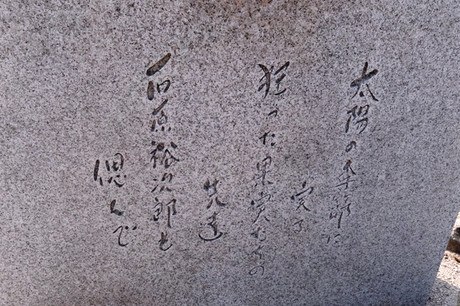 太陽の季節に
実る
狂った果実たちの
先達
石原裕次郎を
偲んで